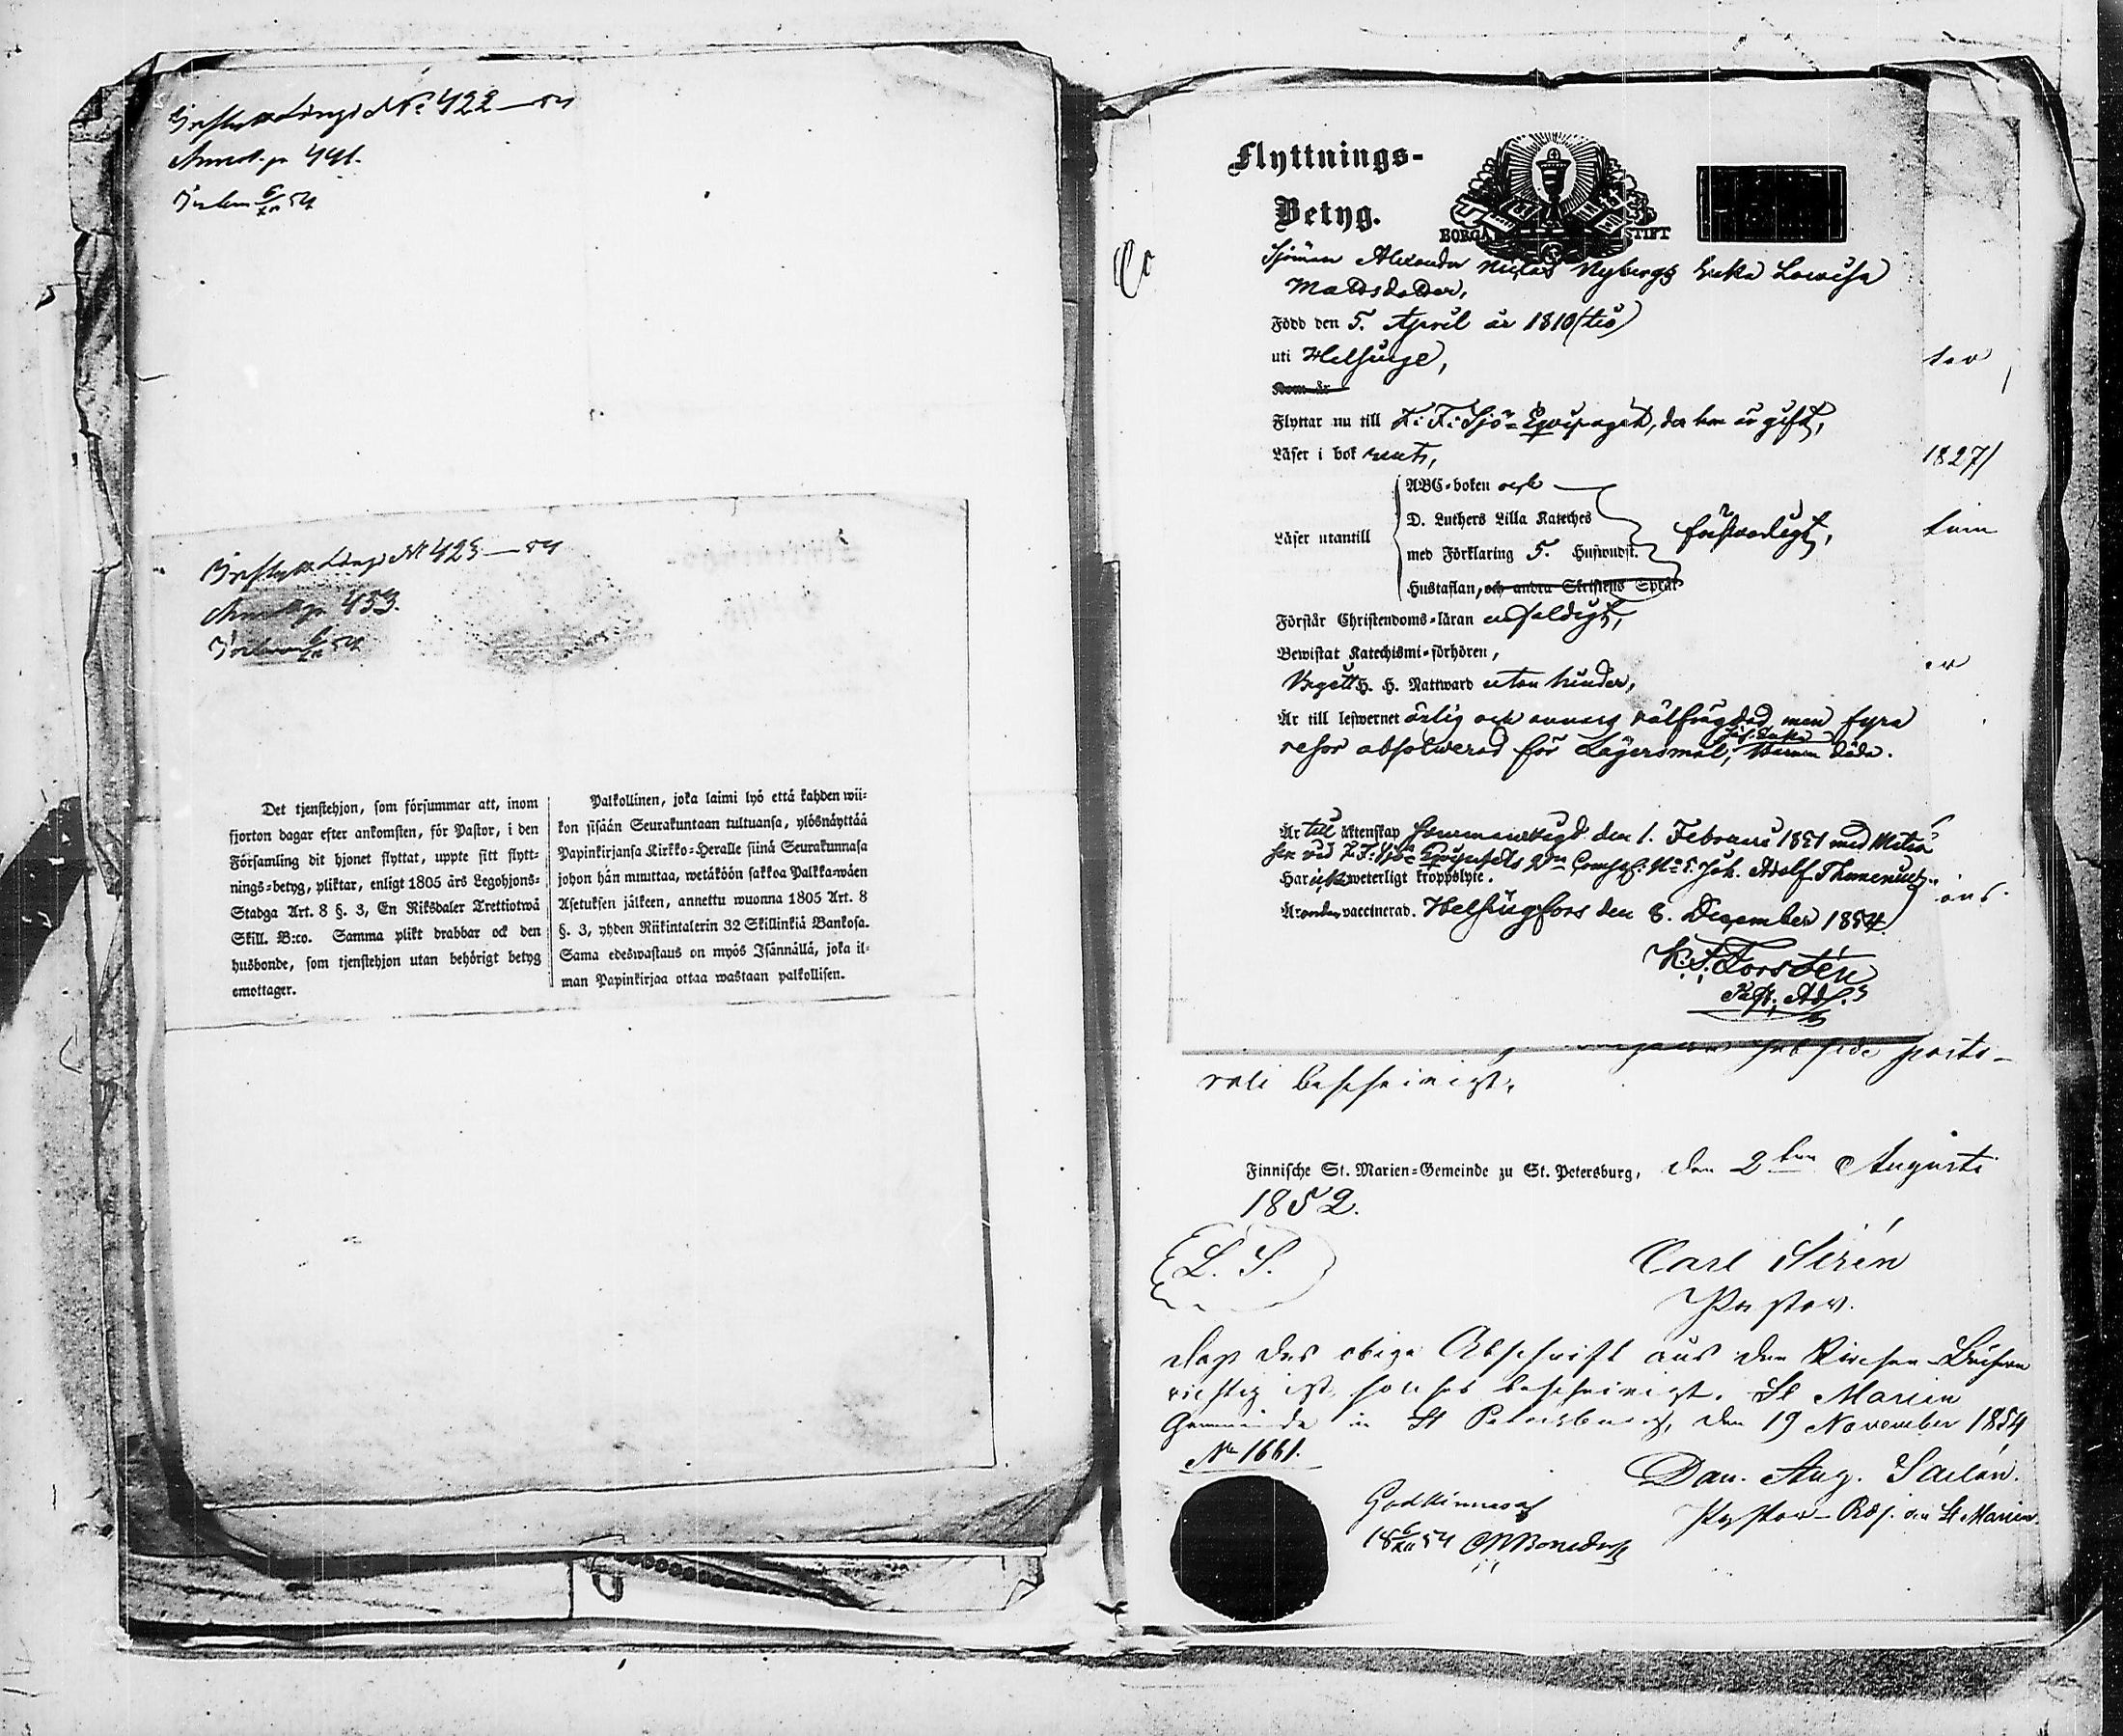 Inflyttnings N:o 422—54
Annot. p. 441.
6/XII 54
N:o 423—54
Annot. p. 453.
6/XII 54
Det tjenstehjon, som försummar att, inom
fjorton dagar efter ankomsten, för Pastor, i den
Församling dit hjonet flyttat, uppte sitt flytt-
nings-betyg, pliktar, enligt 1805 års Legohjons-
Stadga Art. 8 §. 3, En Riksdaler Trettiotwå
Skill. B:co. Samma plikt drabbar ock den
husbonde, som tjenstehjon utan behörigt betyg
emottager.
Palkollinen, joka laimi lyö että kahden wii-
kon sisään Seurakuntaan tultuansa, ylösnäyttää
Papinkirjansa Kirkko-Heralle siinä Seurakunnasa
johon hän muuttaa, wetäköön sakkoa Palkka-wäen
Asetuksen jälkeen, annettu wuonna 1805 Art. 8
§. 3, yhden Riikintalerin 32 Skillinkiä Bankosa.
Sama edeswastaus on myös Isännällä, joka il-
man Papinkirjaa ottaa wastaan palkollisen.
Flyttnings-
Betyg.
BORGÅ STIFT
Sjöman Alexander Niclas Nybergs Enka Lowisa
Mattsdotter,
Född den 5. April år 1810 (tio)
uti Helsinge,
Kom år
Flyttar nu till K. F. Sjö-Eqvipaget, der hon är gift,
Läser i bok rent,
Läser utantill
ABC-boken och
D. Luthers Lilla Kateches
med Förklaring 5. Hufwudst.
Hustaflan, och andra Skriftens Språk
försvarligt,
Förstår Christendoms-läran enfaldigt,
Bewistat Katechismi-förhören,
Begått H. H. Nattward utan hinder,
Är till lefwernet ärlig och annars välfrägdad men fyra
resor absolverad för Lägersmål, döda.
Är till äktenskap sammanvigd den 1. Februari 1851 med
ved K. F. Sjö Eqvipagets 2dra Comp. N:o 5. Joh. Adolf
Har icke weterligt kroppslyte.
Är vaccinerad. Helsingfors den 6. December 1854.
K. F. Forstén
Past. Adj.
ter
1827/
er
pasto-
rali bescheinigt.
Finnische St. Marien-Gemeinde zu St. Petersburg, den 2ten Augusti
1852.
L. S.
Carl Sirén
Pastor.
Dass das obige Abschrift aus den Kirchen-Büchern
richtig ist, solches bescheinigt. St Marien
Gemeinde in St Petersburg, den 19 November 1854
N:o 1661.
Dan. Aug. Sarlén.
Pastor-Adj. an St Marien.
Godkännes
18 6/XII 54